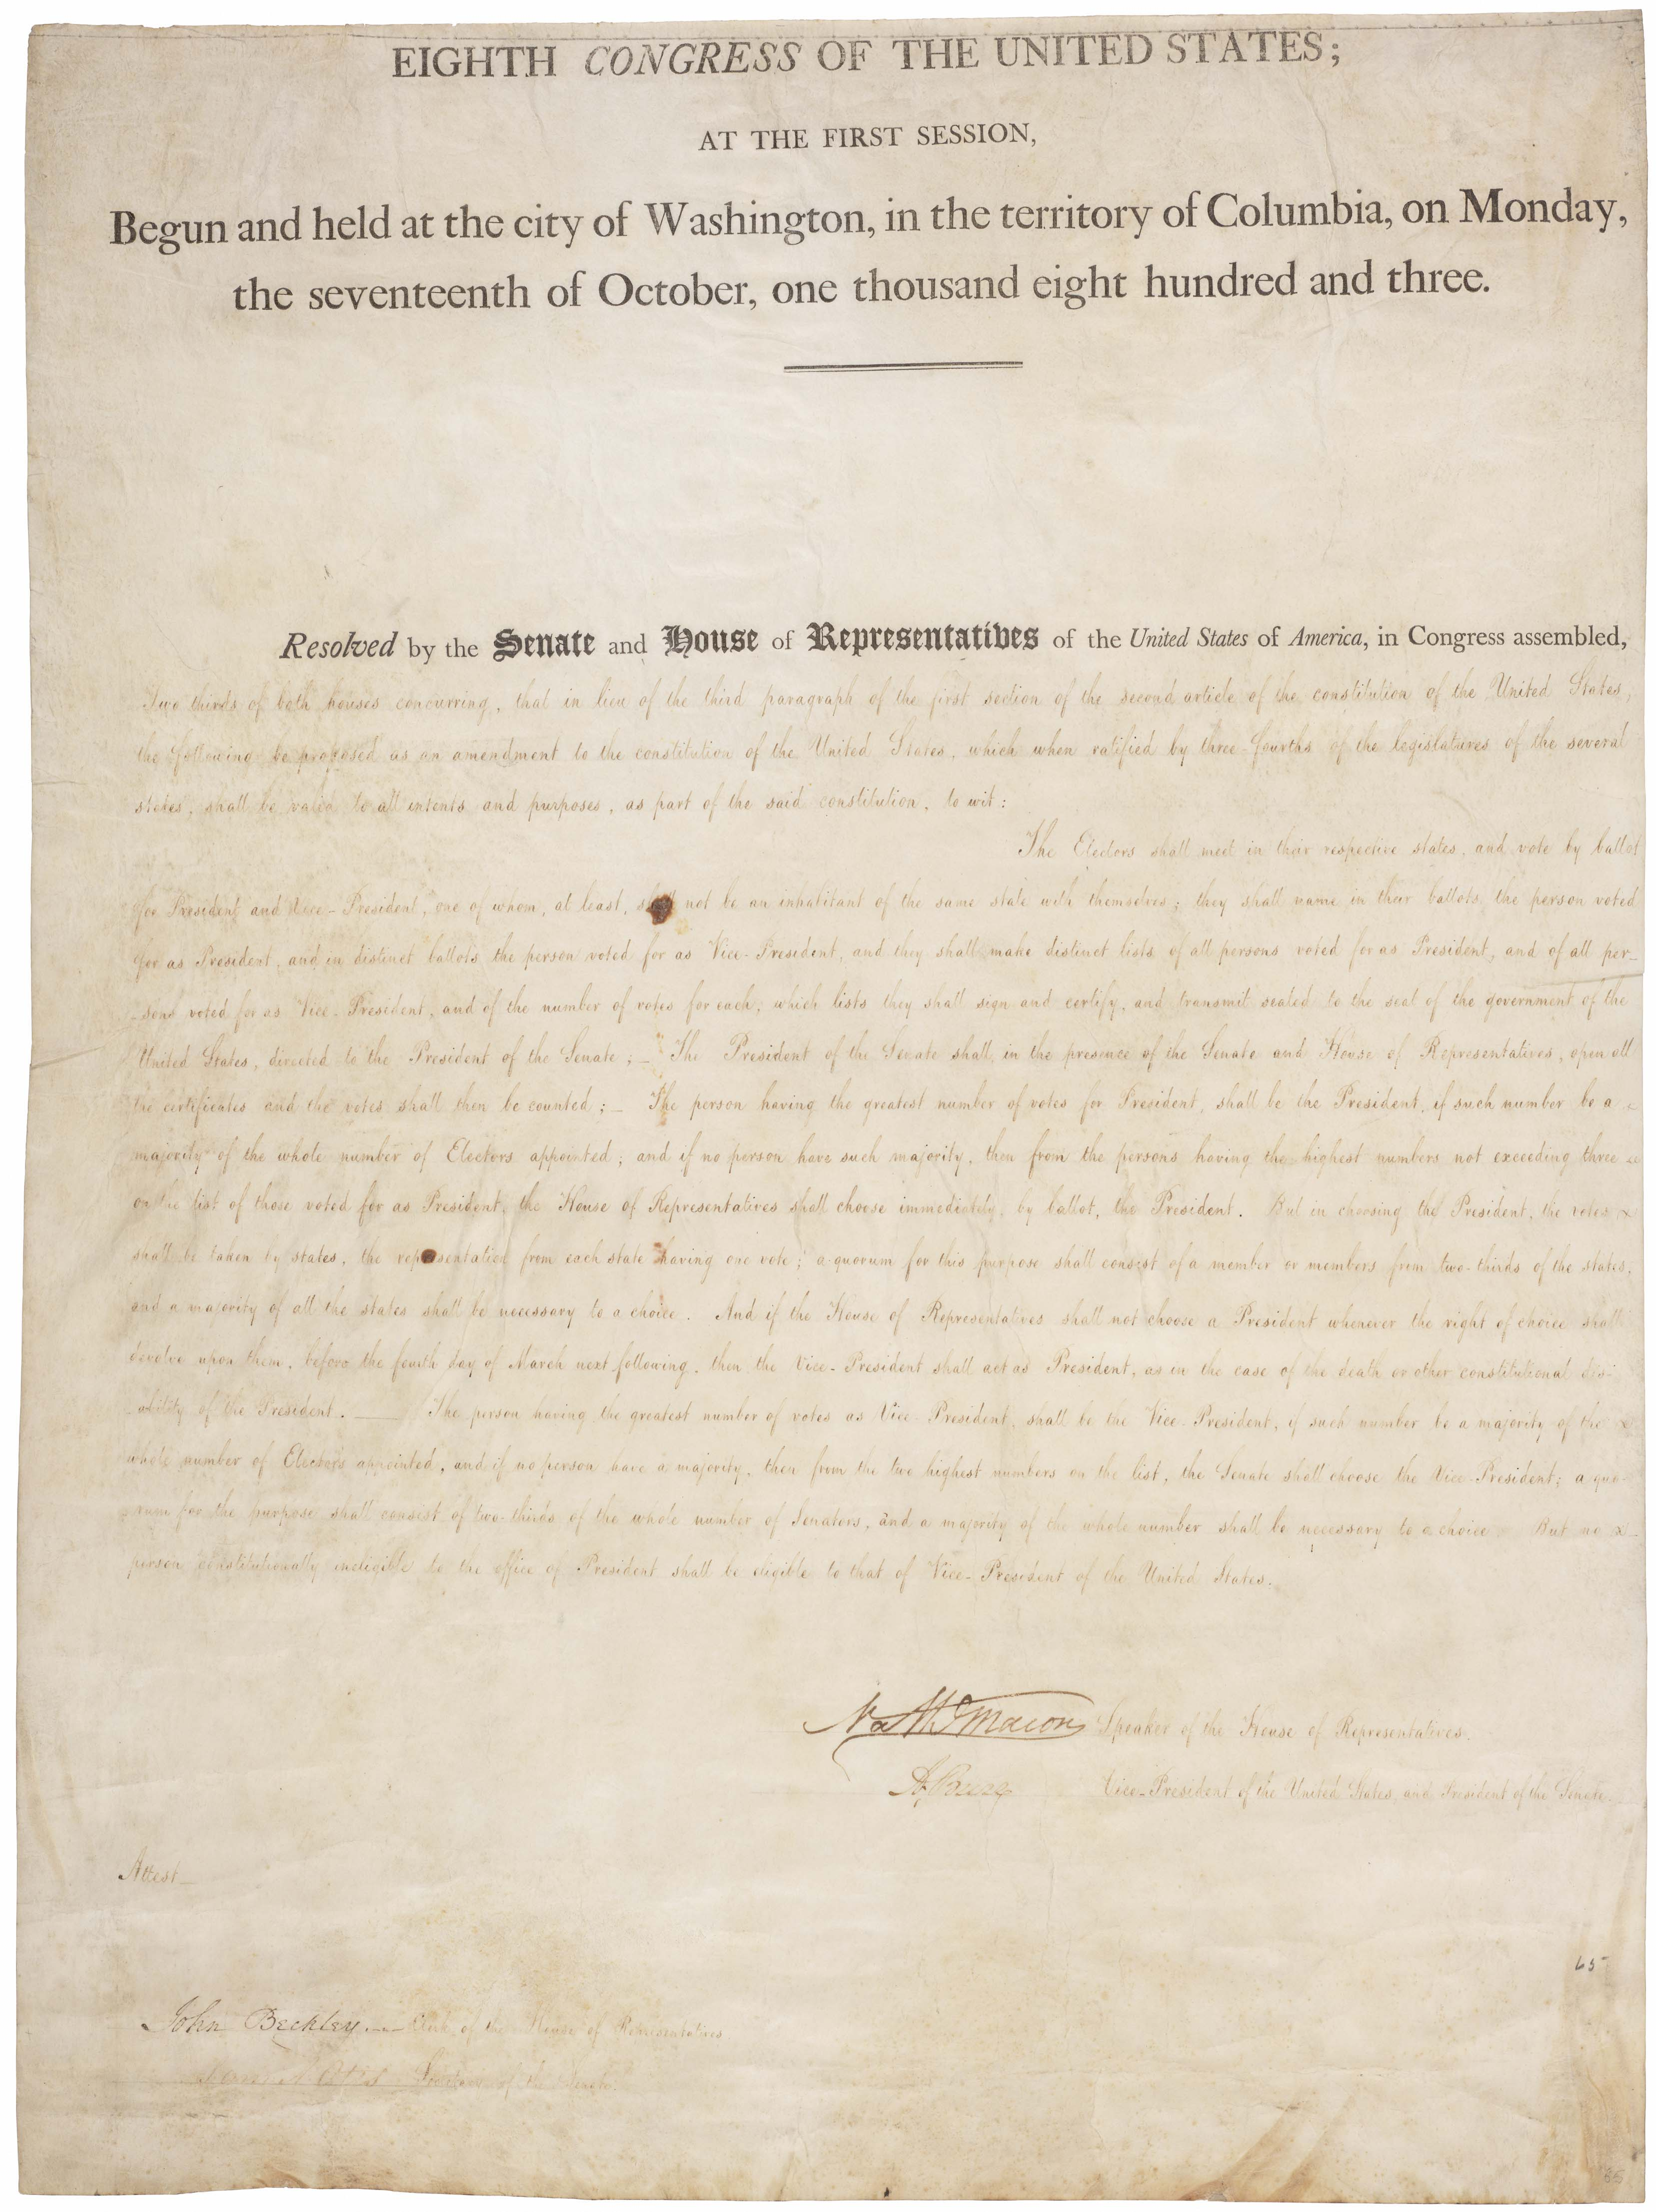 EIGHTH CONGRESS OF THE UNITED STATES;
AT THE FIRST SESSION,
Begun and held at the city of Washington, in the territory of Columbia, on Monday,
the seventeenth of October, one thousand eight hundred and three.
Resolved by the Senate and House of Representatives of the United States of America, in Congress assembled,
Two thirds of both houses concurring, that in lieu of the third paragraph of the first section of the second article of the constitution of the United States,
the following be proposed as an amendment to the constitution of the United States, which when ratified by three-fourths of the legislatures of the several
states, shall be valid to all intents and purposes, as part of the said constitution, to wit:
The Electors shall meet in their respective states, and vote by ballot
for President and Vice-President, one of whom, at least, shall not be an inhabitant of the same state with themselves; they shall name in their ballots the person voted
for as President, and in distinct ballots the person voted for as Vice-President, and they shall make distinct lists of all persons voted for as President, and of all per-
-sons voted for as Vice-President, and of the number of votes for each, which lists they shall sign and certify, and transmit sealed to the seat of the government of the
United States, directed to the President of the Senate;_ The President of the Senate shall, in the presence of the Senate and House of Representatives, open all
the certificates and the votes shall then be counted;_ The person having the greatest number of votes for President, shall be the President, if such number be a
majority of the whole number of Electors appointed; and if no person have such majority, then from the persons having the highest numbers not exceeding three
on the list of those voted for as President, the House of Representatives shall choose immediately, by ballot, the President. But in choosing the President, the votes
shall be taken by states, the representation from each state having one vote; a quorum for this purpose shall consist of a member or members from two-thirds of the states,
and a majority of all the states shall be necessary to a choice. And if the House of Representatives shall not choose a President whenever the right of choice shall
devolve upon them, before the fourth day of March next following, then the Vice-President shall act as President, as in the case of the death or other constitutional dis-
-ability of the President.___ The person having the greatest number of votes as Vice-President, shall be the Vice-President, if such number be a majority of the
whole number of Electors appointed, and if no person have a majority, then from the two highest numbers on the list, the Senate shall choose the Vice-President; a quo-
-rum for the purpose shall consist of two-thirds of the whole number of Senators, and a majority of the whole number shall be necessary to a choice. But no
person constitutionally ineligible to the office of President shall be eligible to that of Vice-President of the United States.
Nathl Macon Speaker of the House of Representatives.
A. Burr Vice-President of the United States, and President of the Senate.
Attest_
65
John Beckley.__ Clerk of the House of Representatives
Sam A Otis Secretary of the Senate.